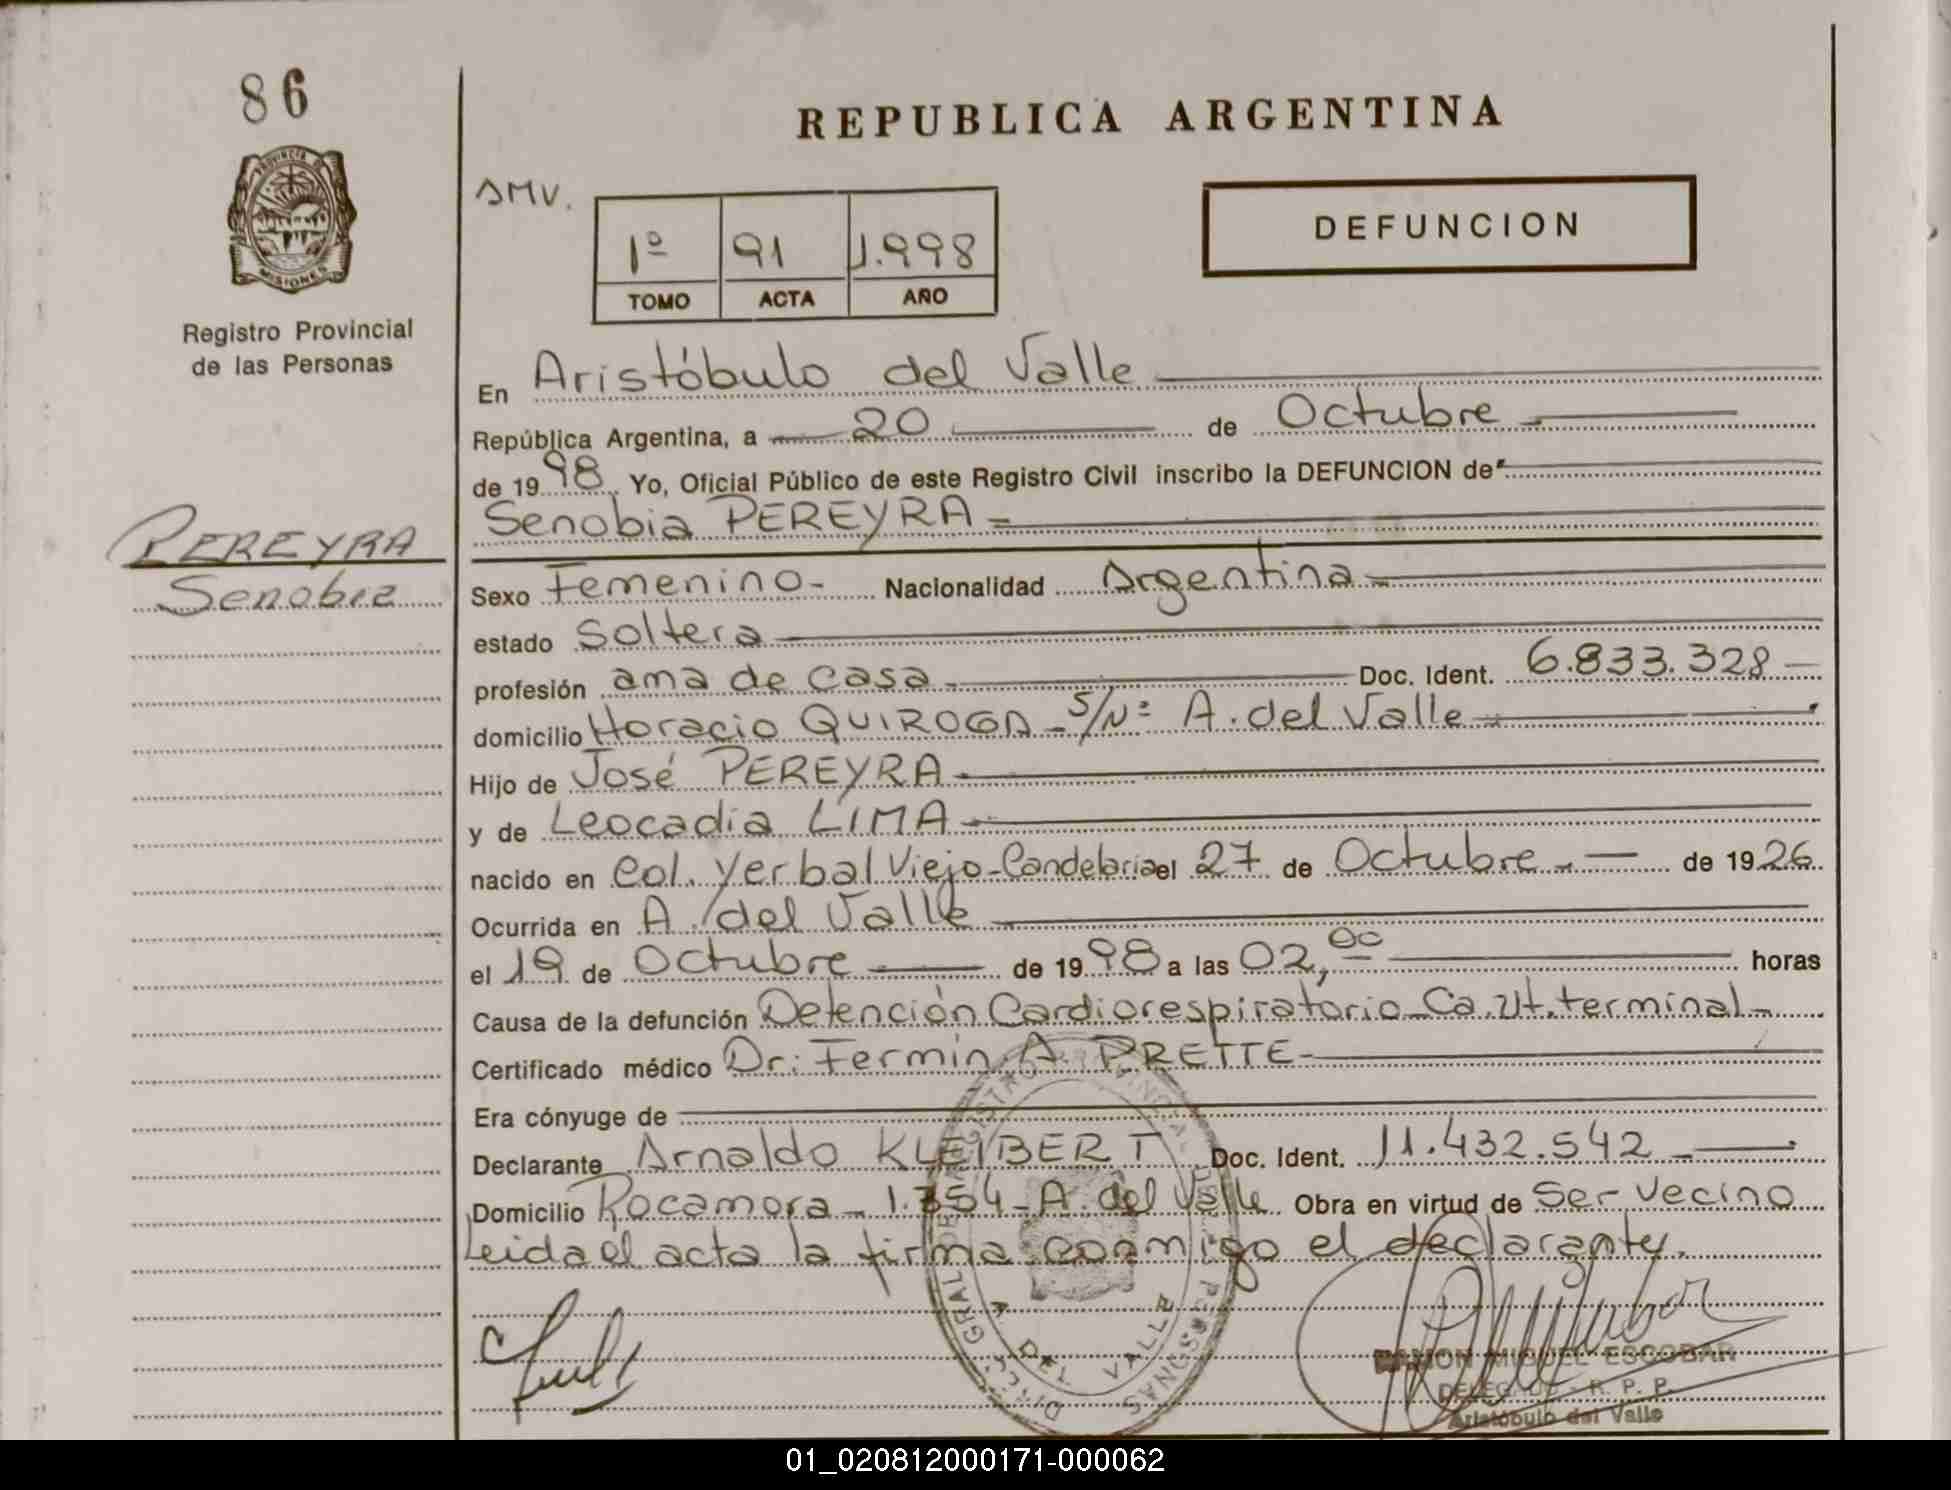 86
PROVINCIA DE
MISIONES
Registro Provincial
de las Personas
PEREYRA
Senobia
REPUBLICA ARGENTINA
AMV.
1º 91 1.998
TOMO ACTA AÑO
DEFUNCION
En Aristóbulo del Valle
República Argentina, a 20 de Octubre
de 1998 Yo, Oficial Público de este Registro Civil inscribo la DEFUNCION de
Senobia PEREYRA
Sexo Femenino Nacionalidad Argentina
estado Soltera
profesión ama de casa Doc. Ident. 6.833.328
domicilio Horacio QUIROGA S/Nº A. del Valle
Hijo de José PEREYRA
y de Leocadia LIMA
nacido en Col. Yerbal Viejo-Candelaria el 27 de Octubre de 1926
Ocurrida en A. del Valle
el 19 de Octubre de 1998 a las 02,00 horas
Causa de la defunción Detención Cardiorespiratorio-Ca.Ut.terminal
Certificado médico Dr: Fermin A. PRETTE
Era cónyuge de
Declarante Arnaldo KLEIBERT Doc. Ident. 11.432.542
Domicilio Rocamora - 1.354 - A. del Valle Obra en virtud de Ser vecino
Leida el acta la firma conmigo el declarante.
RAMON MIGUEL ESCOBAR
DELEGADO - R. P. P.
Aristóbulo del Valle
A. DEL VALLE
01_020812000171-000062